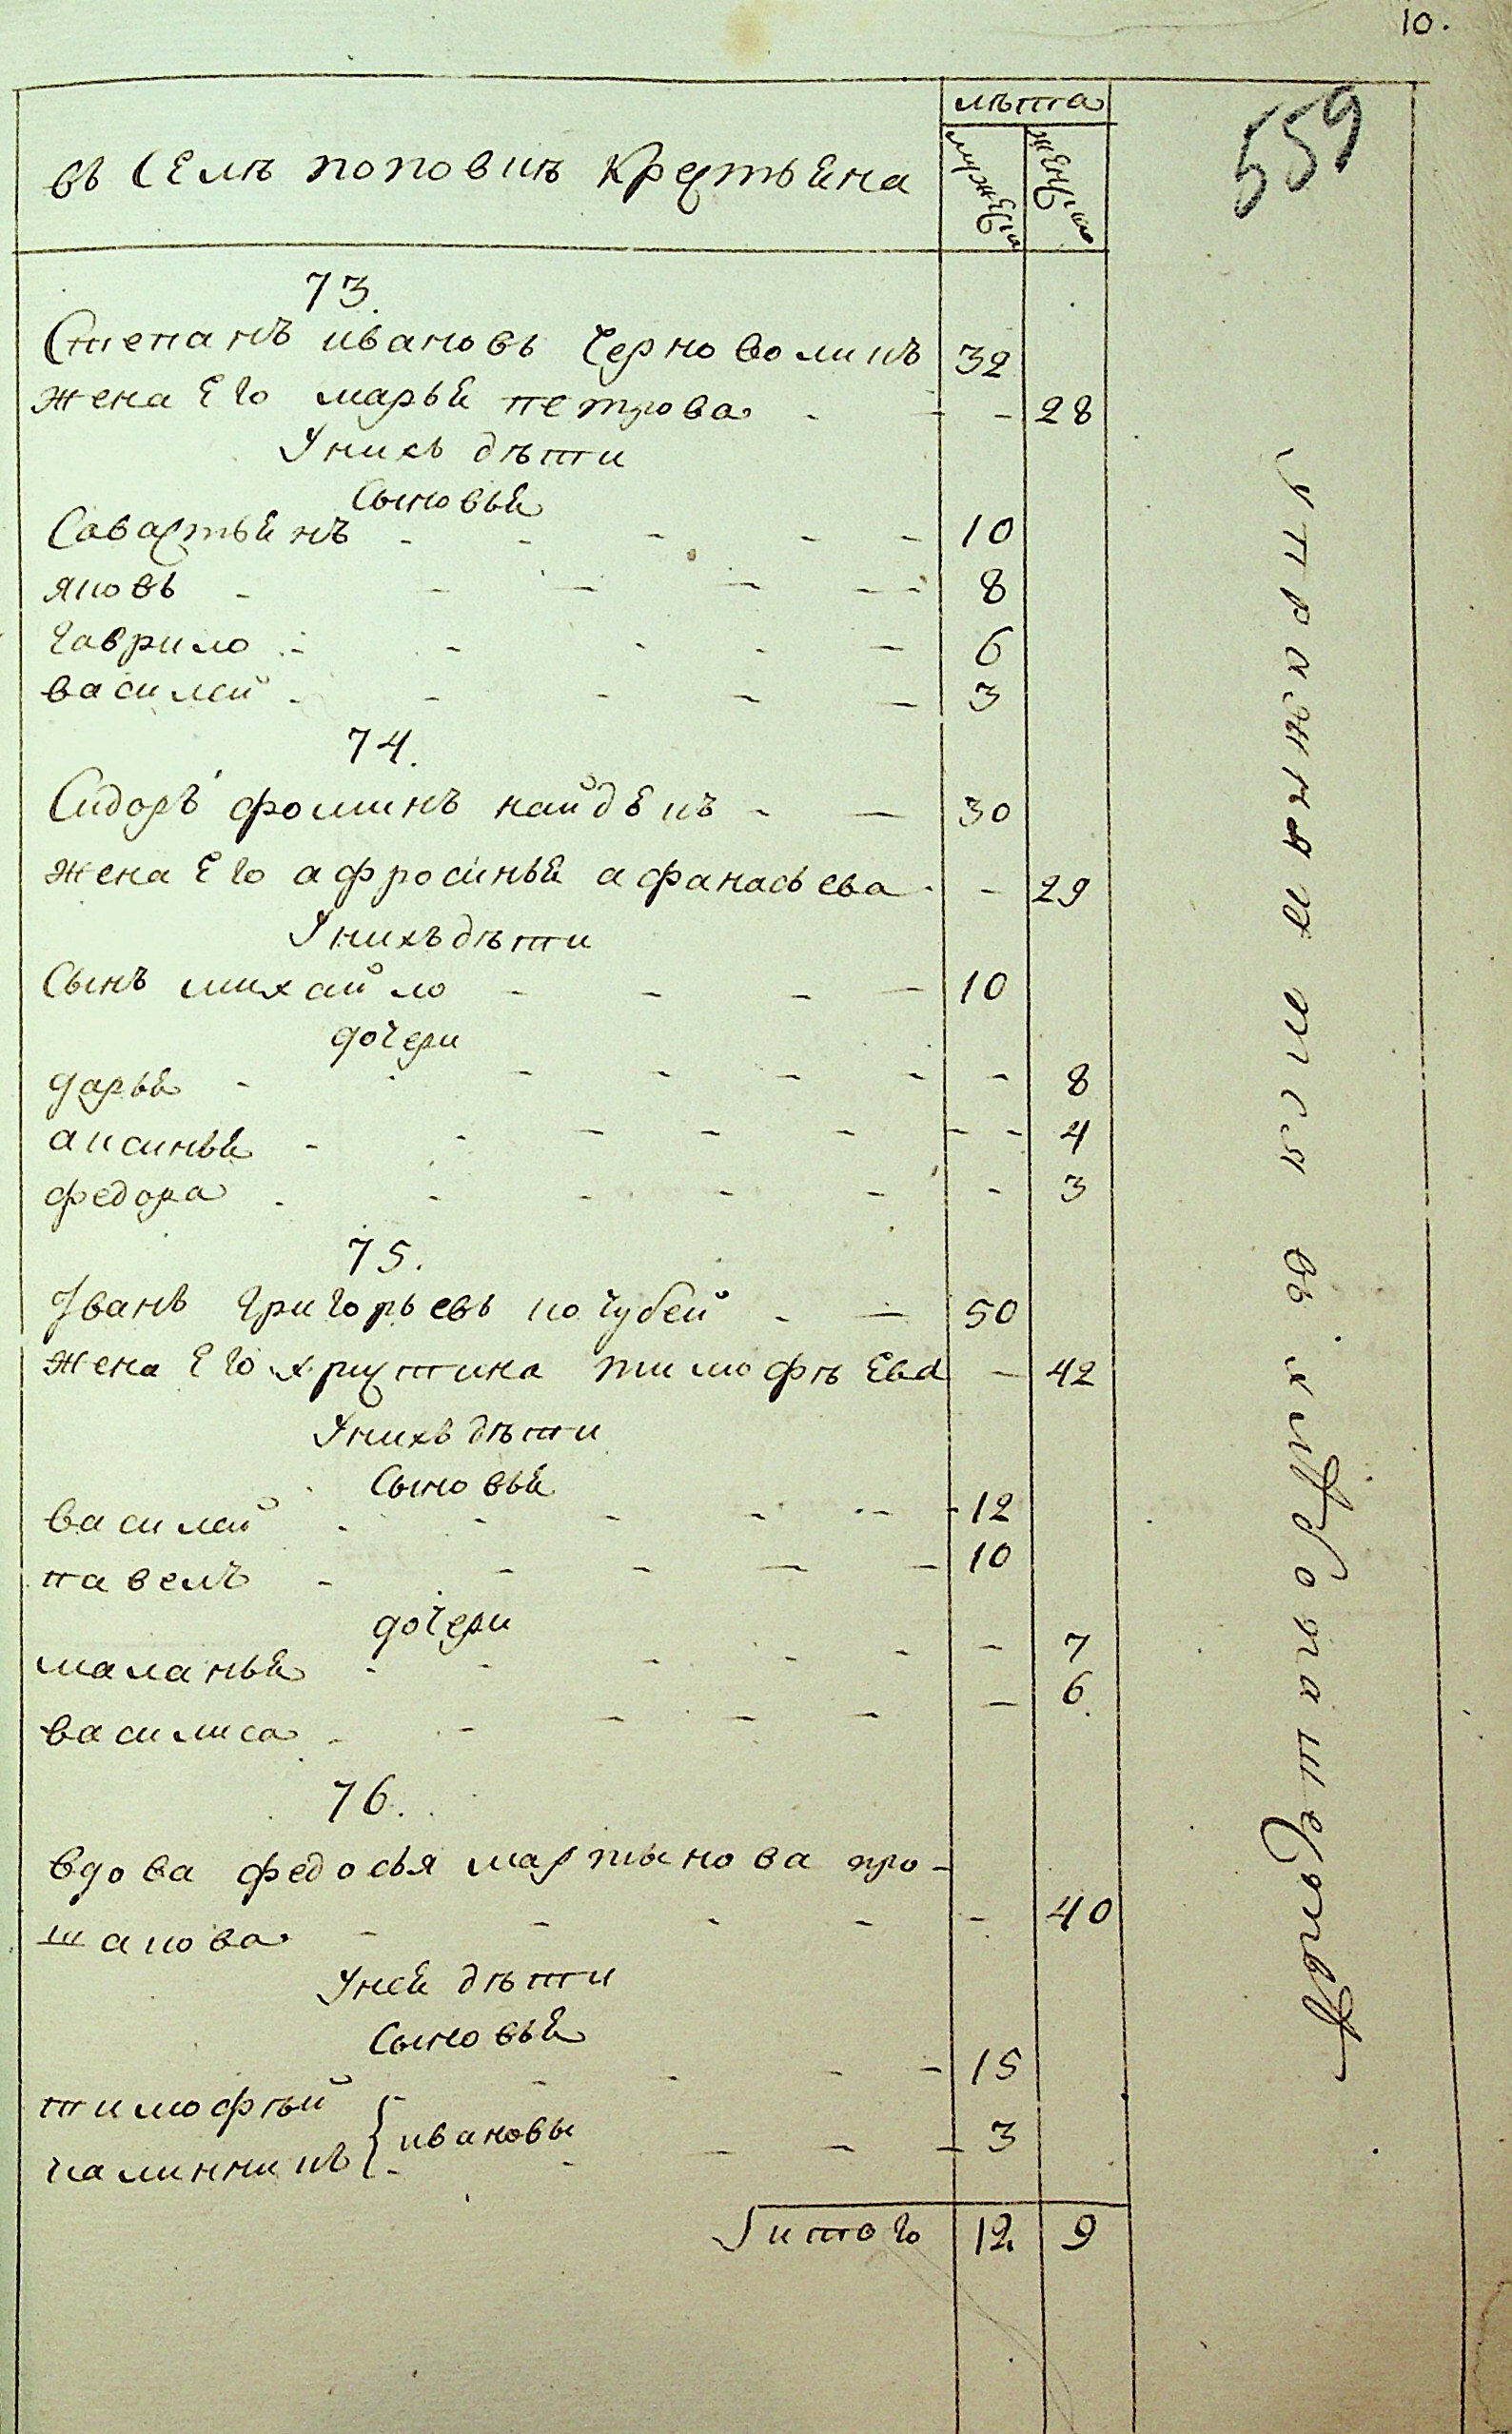 10.
559
въ Селѣ поповкѣ Крестьяна
лѣта
мужеска
женска
73.
Степанъ ивановъ Черноволикъ 32
жена Его марья петрова - - - 28
У нихъ дѣти
Сыновья
Савастьянъ - - - - - 10
яковъ - - - - - - 8
гаврило - - - - - 6
василей - - - - - 3
74.
Сидоръ фоминъ найдѣнъ - - 30
жена Его афросинья афанасьева - - 29
У нихъ дѣти
Сынъ михайло - - - - 10
дочери
дарья - - - - - - - 8
аксинья - - - - - - - 4
федора - - - - - - 3
75.
Іванъ григорьевъ кочубей - - 50
жена Его христина тимофѣева - 42
У нихъ дѣти
Сыновья
василей - - - - - - - 12
павелъ - - - - - 10
дочери
маланья - - - - - - 7
василиса - - - - - - 6
76.
вдова федосья мартынова про-
шакова - - - - - 40
У ней дѣти
Сыновья
тимофѣй - - - - 15
калинникъ { ивановы - - - 3
итого 12 9